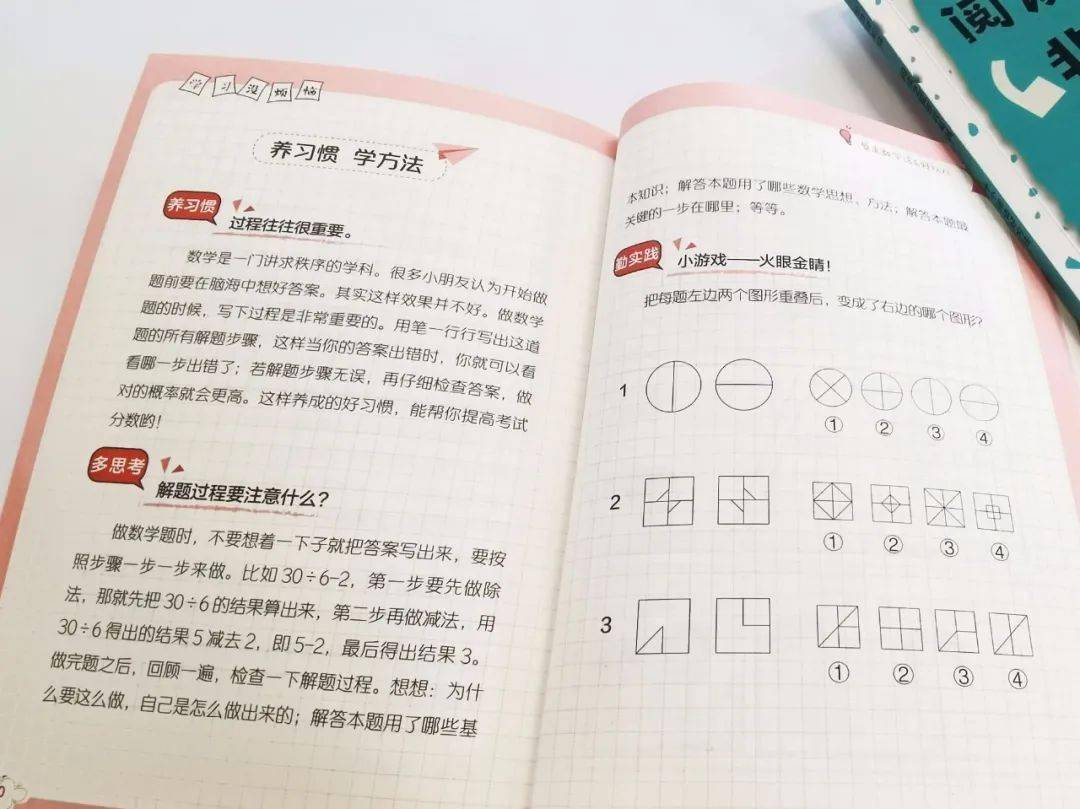 学习没烦恼
养习惯 学方法
养习惯
过程往往很重要。
数学是一门讲求秩序的学科。很多小朋友认为开始做
题前要在脑海中想好答案。其实这样效果并不好。做数学
题的时候，写下过程是非常重要的。用笔一行行写出这道
题的所有解题步骤，这样当你的答案出错时，你就可以看
看哪一步出错了；若解题步骤无误，再仔细检查答案，做
对的概率就会更高。这样养成的好习惯，能帮你提高考试
分数哟！
多思考
解题过程要注意什么？
做数学题时，不要想着一下子就把答案写出来，要按
照步骤一步一步来做。比如30÷6-2，第一步要先做除
法，那就先把30÷6的结果算出来，第二步再做减法，用
30÷6得出的结果5减去2，即5-2，最后得出结果3。
做完题之后，回顾一遍，检查一下解题过程。想想：为什
么要这么做，自己是怎么做出来的；解答本题用了哪些基
本知识；解答本题用了哪些数学思想、方法；解答本题最
关键的一步在哪里；等等。
勤实践
小游戏——火眼金睛！
把每题左边两个图形重叠后，变成了右边的哪个图形？
1
① ② ③ ④
2
① ② ③ ④
3
① ② ③ ④
阅